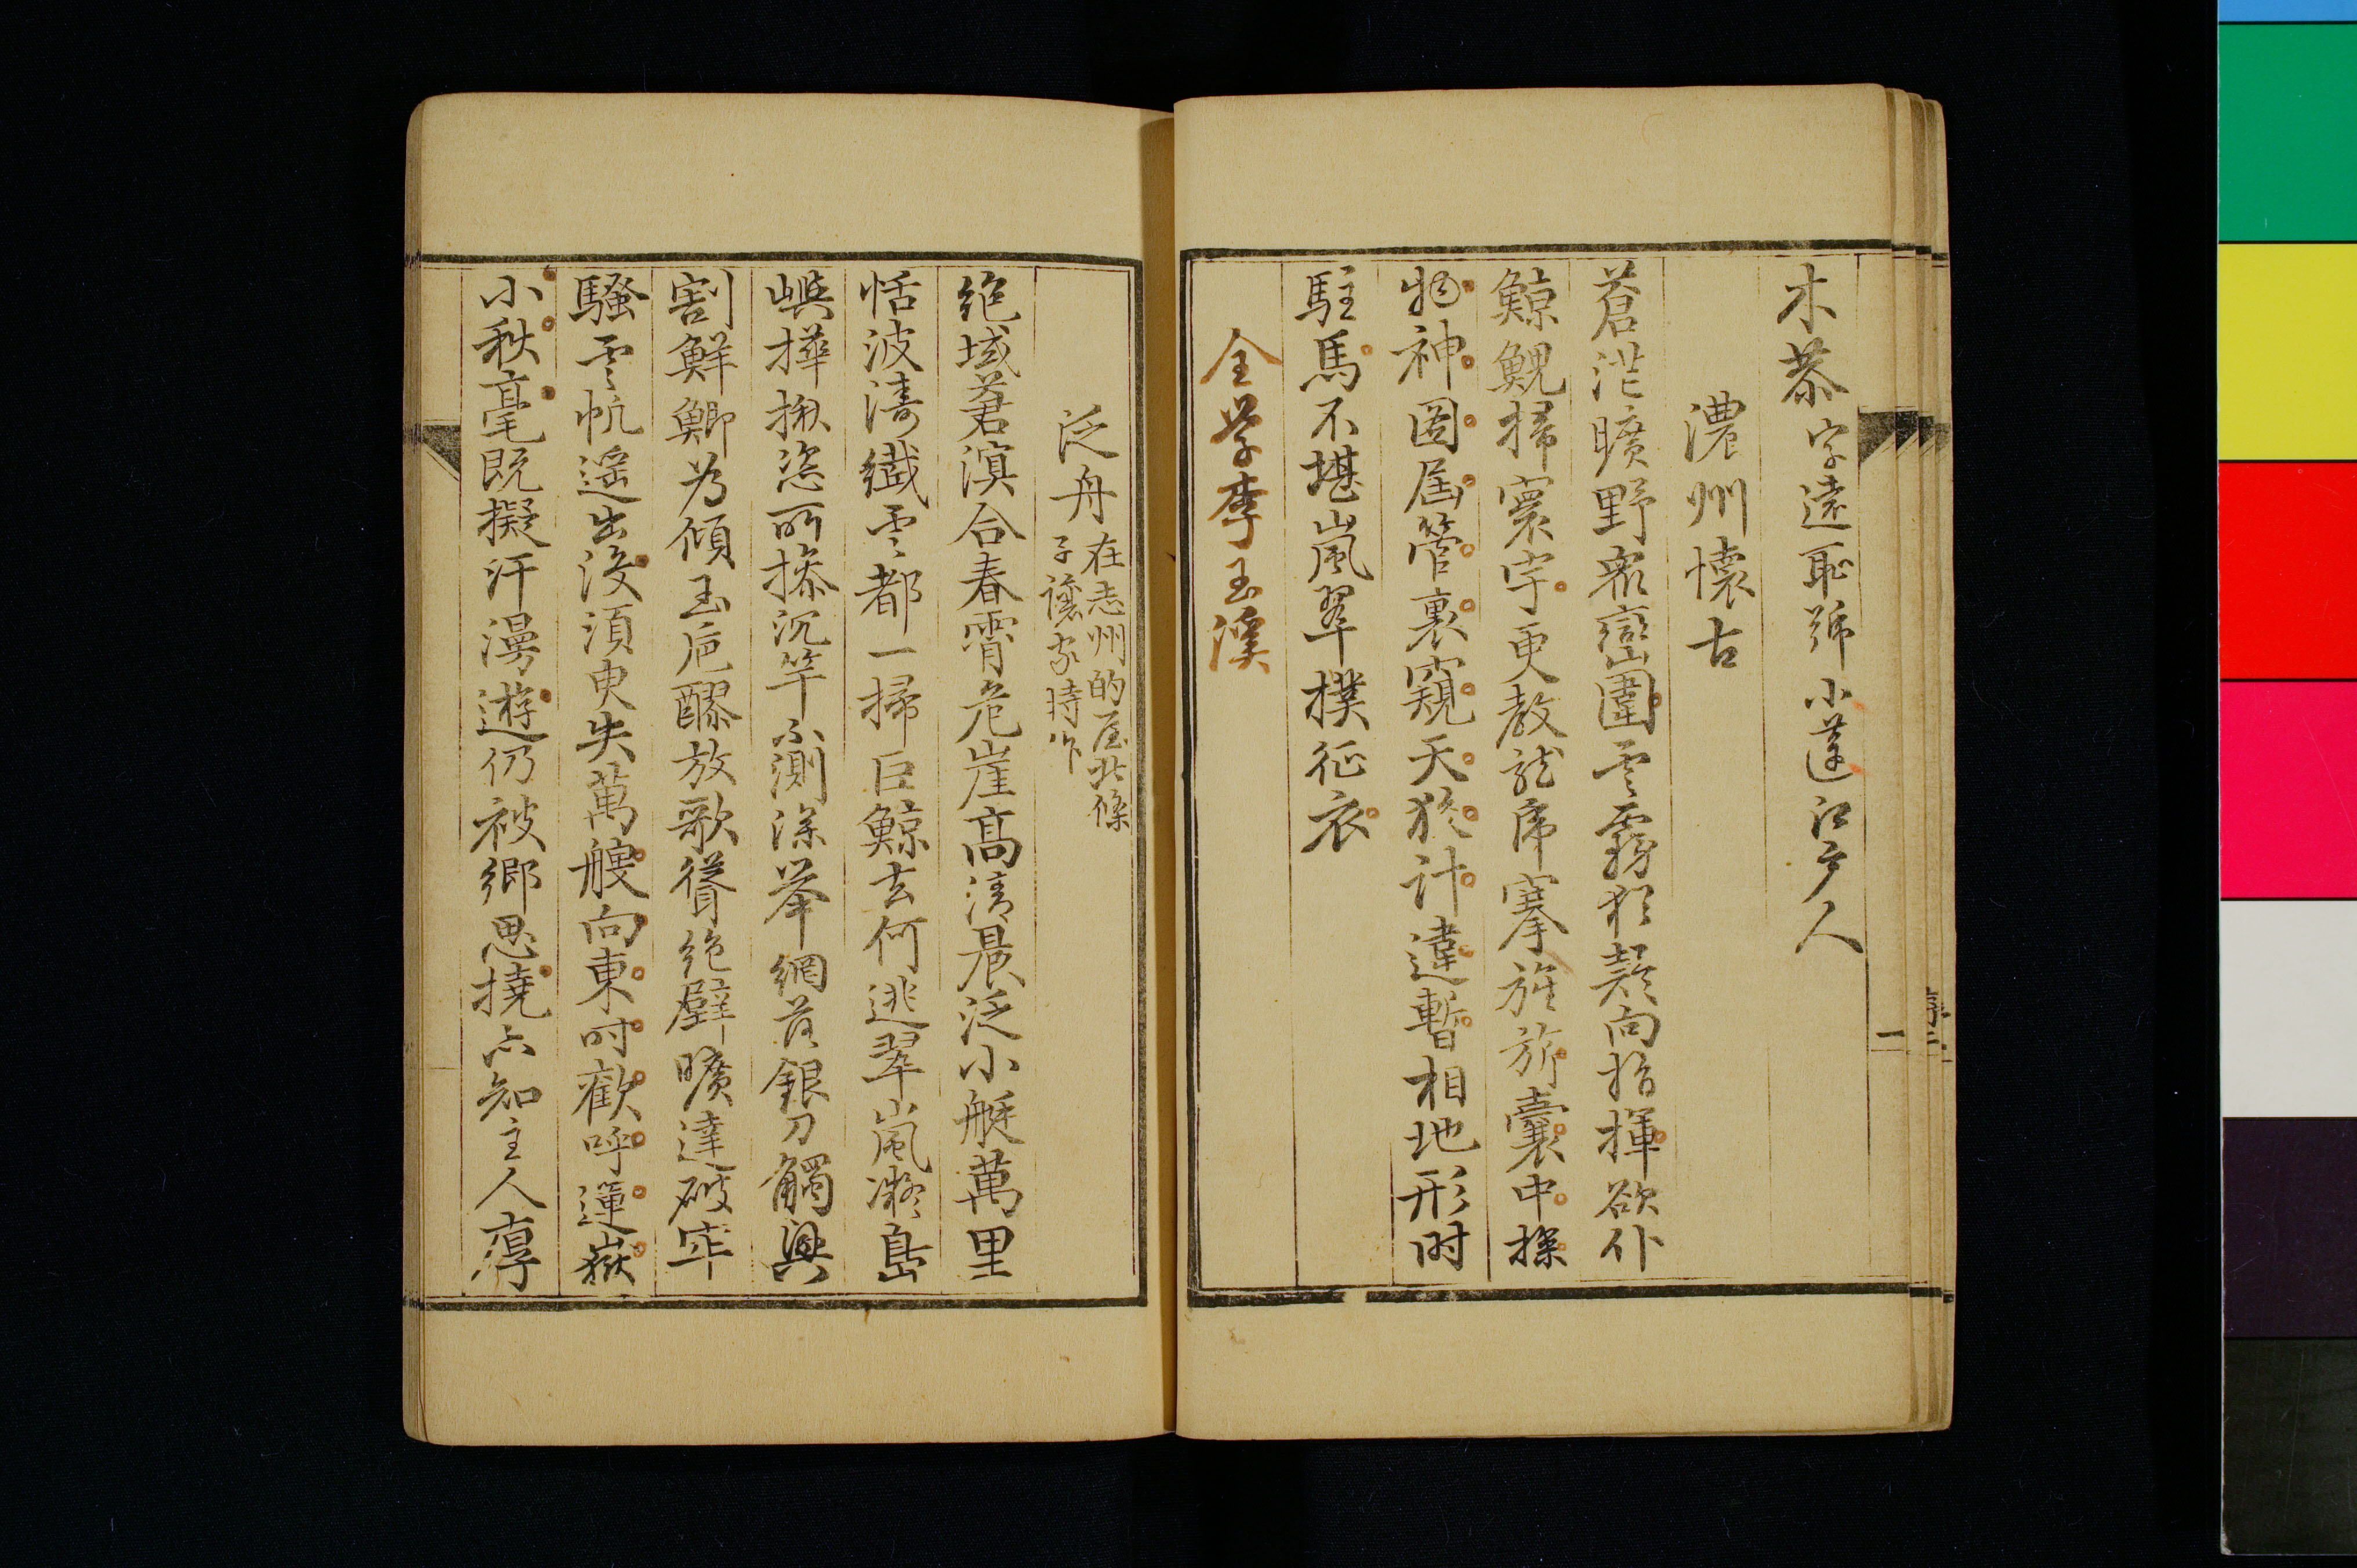 木恭字遠恥號小蓮江戶人
濃州懷古
蒼茫曠野衆巒圍雲霧猶疑向指揮欲仆
鯨鯢掃寰宇更教龍虎搴旌旂囊中探
物神圖屆管裏窺天狡計違暫相地形时
駐馬不堪嵐翠撲征衣
全學李玉溪
泛舟在志州的屋北條
子讓家時作
絶域蒼溟合春霄危崖高清晨泛小艇萬里
恬波濤纖雲都一掃巨鯨去何逃翠嵐凝島
嶼擇楸恣所搽沉竿不測深举網荐銀刀觸興
割鮮鯽为傾玉卮醪放歌聳絶壁曠達破牢
騷雲帆遥出没須臾失萬艘向東时歡呼蓮嶽
小秋毫既擬汗漫遊仍被鄉思撓亦知主人惇
一